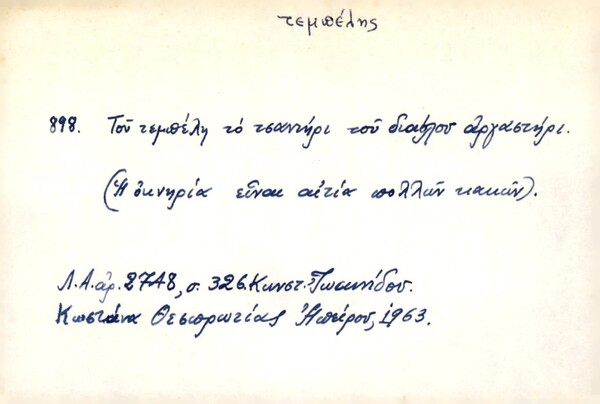 τεμπέλης
898. Τοῦ τεμπέλη τό τσαντήρι τοῦ διαβόλου ἀργαστήρι.
(Ἡ ὀκνηρία εἶναι αἰτία πολλῶν κακῶν).
Λ.Α. ἀρ. 2748, σ. 326. Κωνστ. Ἰωαννίδου.
Κωστάνα Θεσπρωτίας Ἠπείρου, 1963.